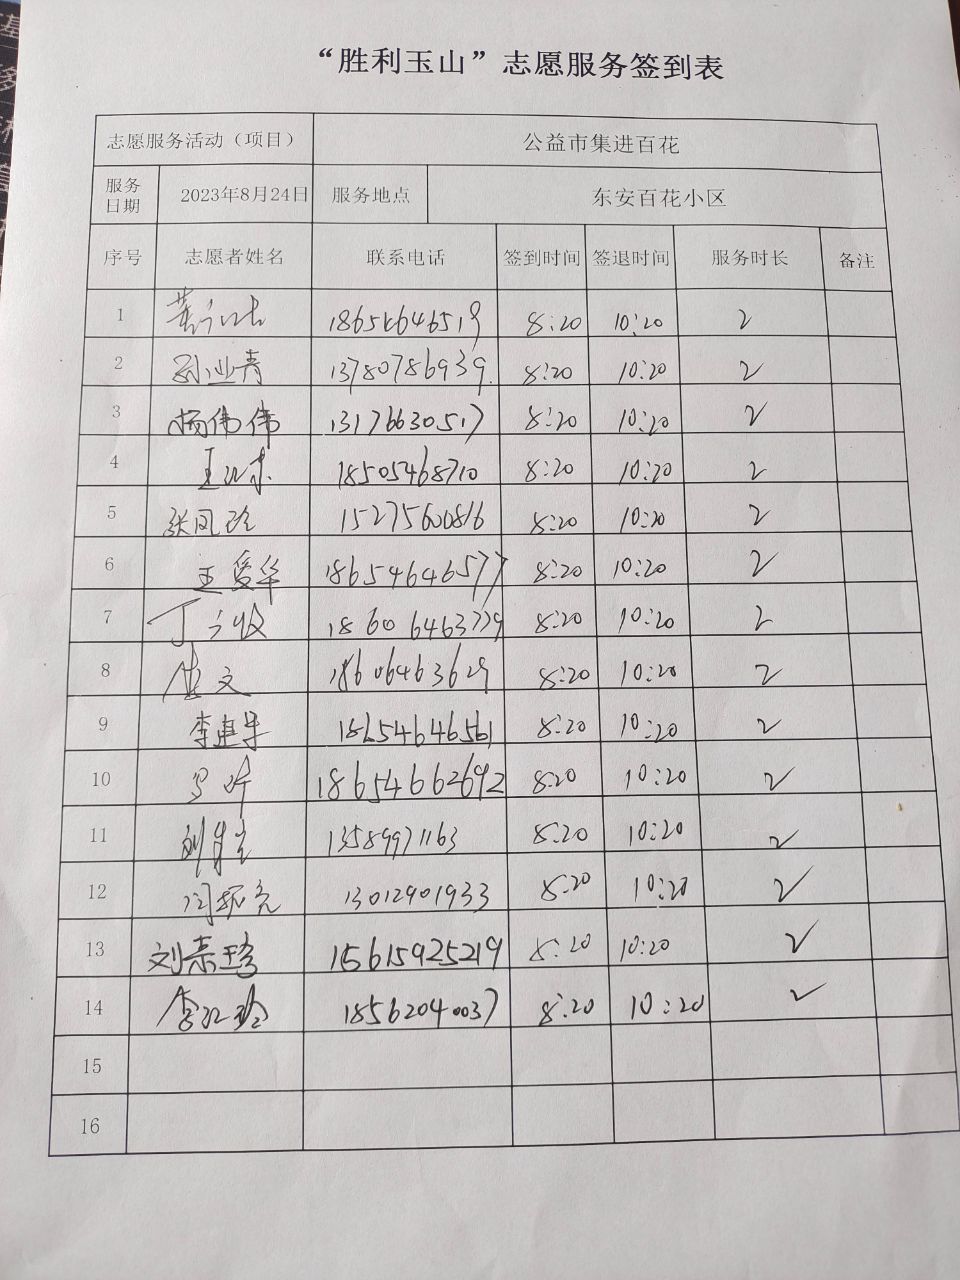 “胜利玉山”志愿服务签到表
志愿服务活动（项目） 公益市集进百花
服务日期 2023年8月24日 服务地点 东安百花小区
序号 志愿者姓名 联系电话 签到时间 签退时间 服务时长 备注
1 8:20 10:20 2
2 孙业青 13780786939 8:20 10:20 2
3 杨伟伟 13176630517 8:20 10:20 2
4 18505468710 8:20 10:20 2
5 张凤玲 15275600816 8:20 10:20 2
6 王爱华 18654646577 8:20 10:20 2
7 丁 8:20 10:20 2
8 文 18606463629 8:20 10:20 2
9 李建华 18654646561 8:20 10:20 2
10 18654662692 8:20 10:20 2
11 13589971163 8:20 10:20 2
12 闫振亮 13012901933 8:20 10:20 2
13 刘素珍 15615925219 8:20 10:20 2
14 李红玲 18562040037 8:20 10:20 2
15
16